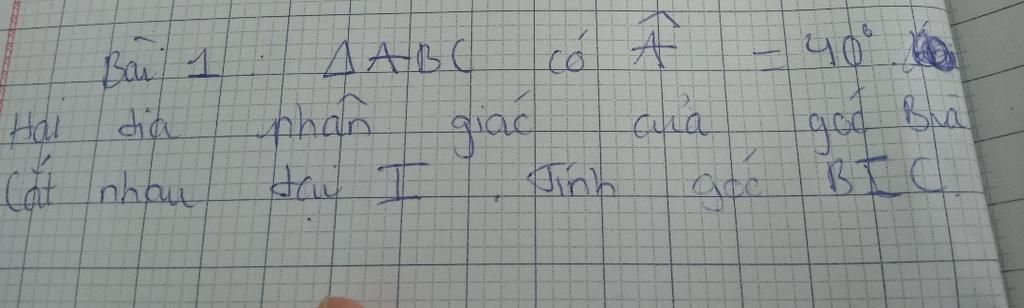 Bài 1 : ΔABC có Â = 40°.
Hai tia phân giác của góc B và
Cắt nhau tại I. Tính góc BIC.